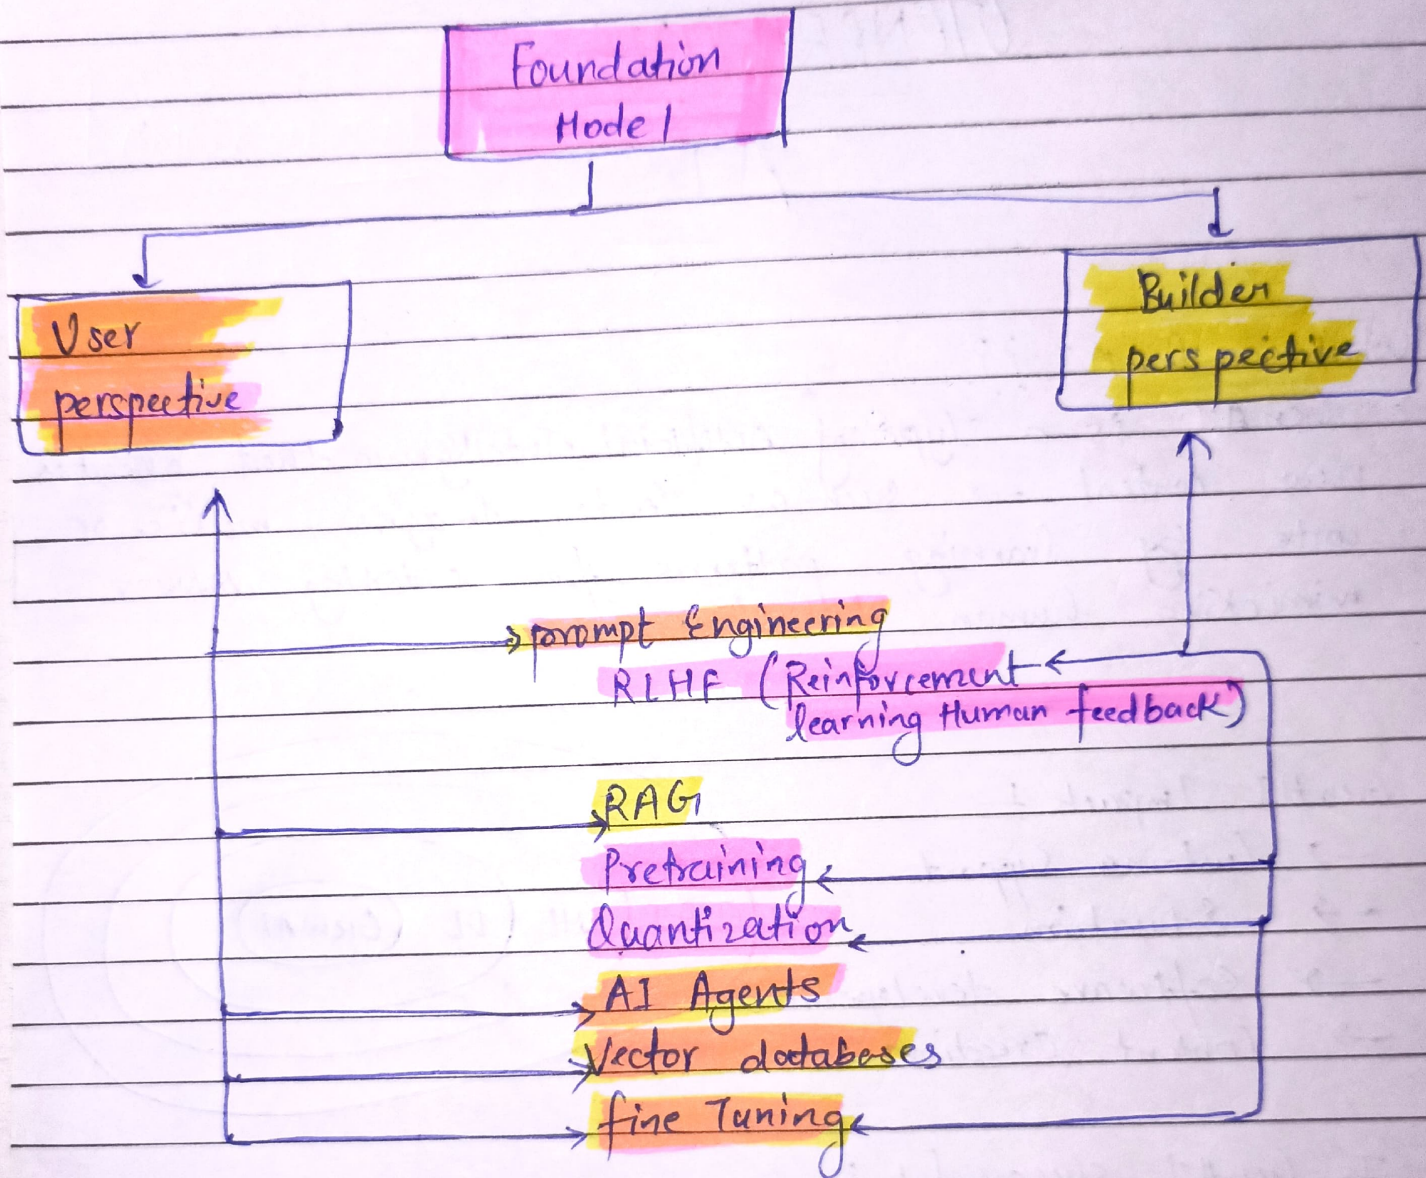 Foundation
Model
User
perspective
Builder
perspective
prompt Engineering
RLHF (Reinforcement
learning Human feedback)
RAG
Pretraining
Quantization
AI Agents
Vector databases
fine Tuning